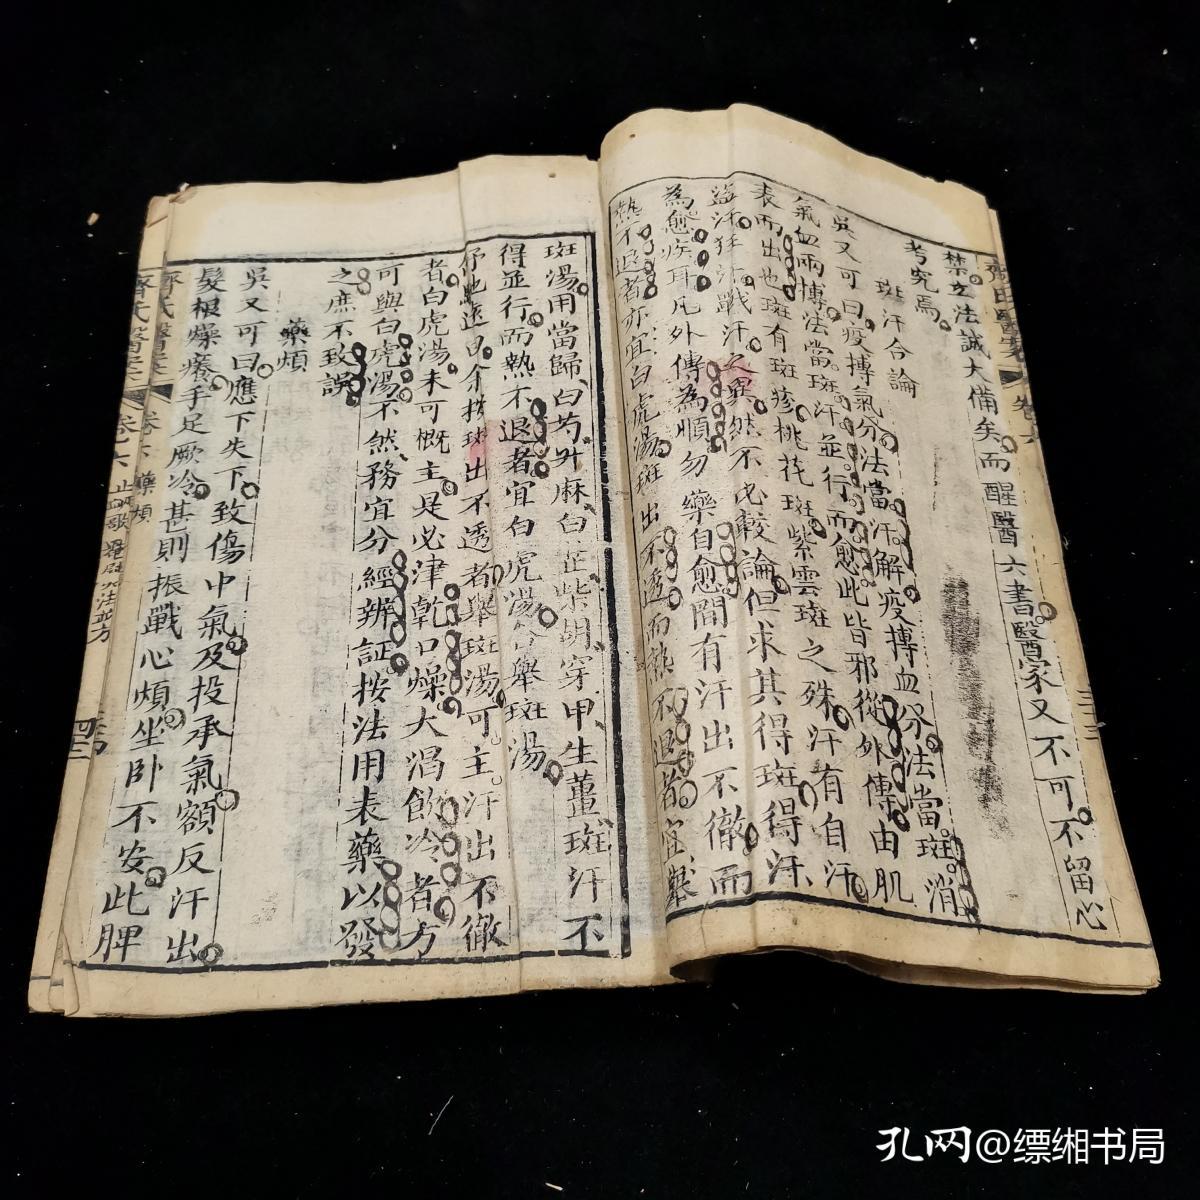 禁立法誠大備矣而醒醫六書醫家又不可不留心
考究焉
斑汗合論
吳又可曰疫搏氣分法當汗解疫搏血分法當斑消
氣血兩搏法當斑汗並行而愈此皆邪從外傳由肌
表而出也斑有斑疹桃花斑紫雲斑之殊汗有自汗
盜汗狂汗戰汗之異然不必較論但求其得斑得汗
為愈疾耳凡外傳為順勿藥自愈間有汗出不徹而
熱不退者亦宜白虎湯斑出不透而熱不退者宜舉
斑湯用當歸白芍升麻白芷柴胡穿甲生薑斑汗不
得並行而熱不退者宜白虎湯合舉斑湯
曰余按斑出不透者舉斑湯可主汗出不徹
者白虎湯未可概主是必津乾口燥大渴飲冷者方
可與白虎湯不然務宜分經辨証按法用表藥以發
之庶不致誤
藥煩
吳又可曰應下失下致傷中氣及投承氣額反汗出
髮根燥癢手足厥冷甚則振戰心煩坐卧不安此脾
齊氏醫案 卷六 藥煩
齊氏醫案 卷六
孔网@缥缃书局